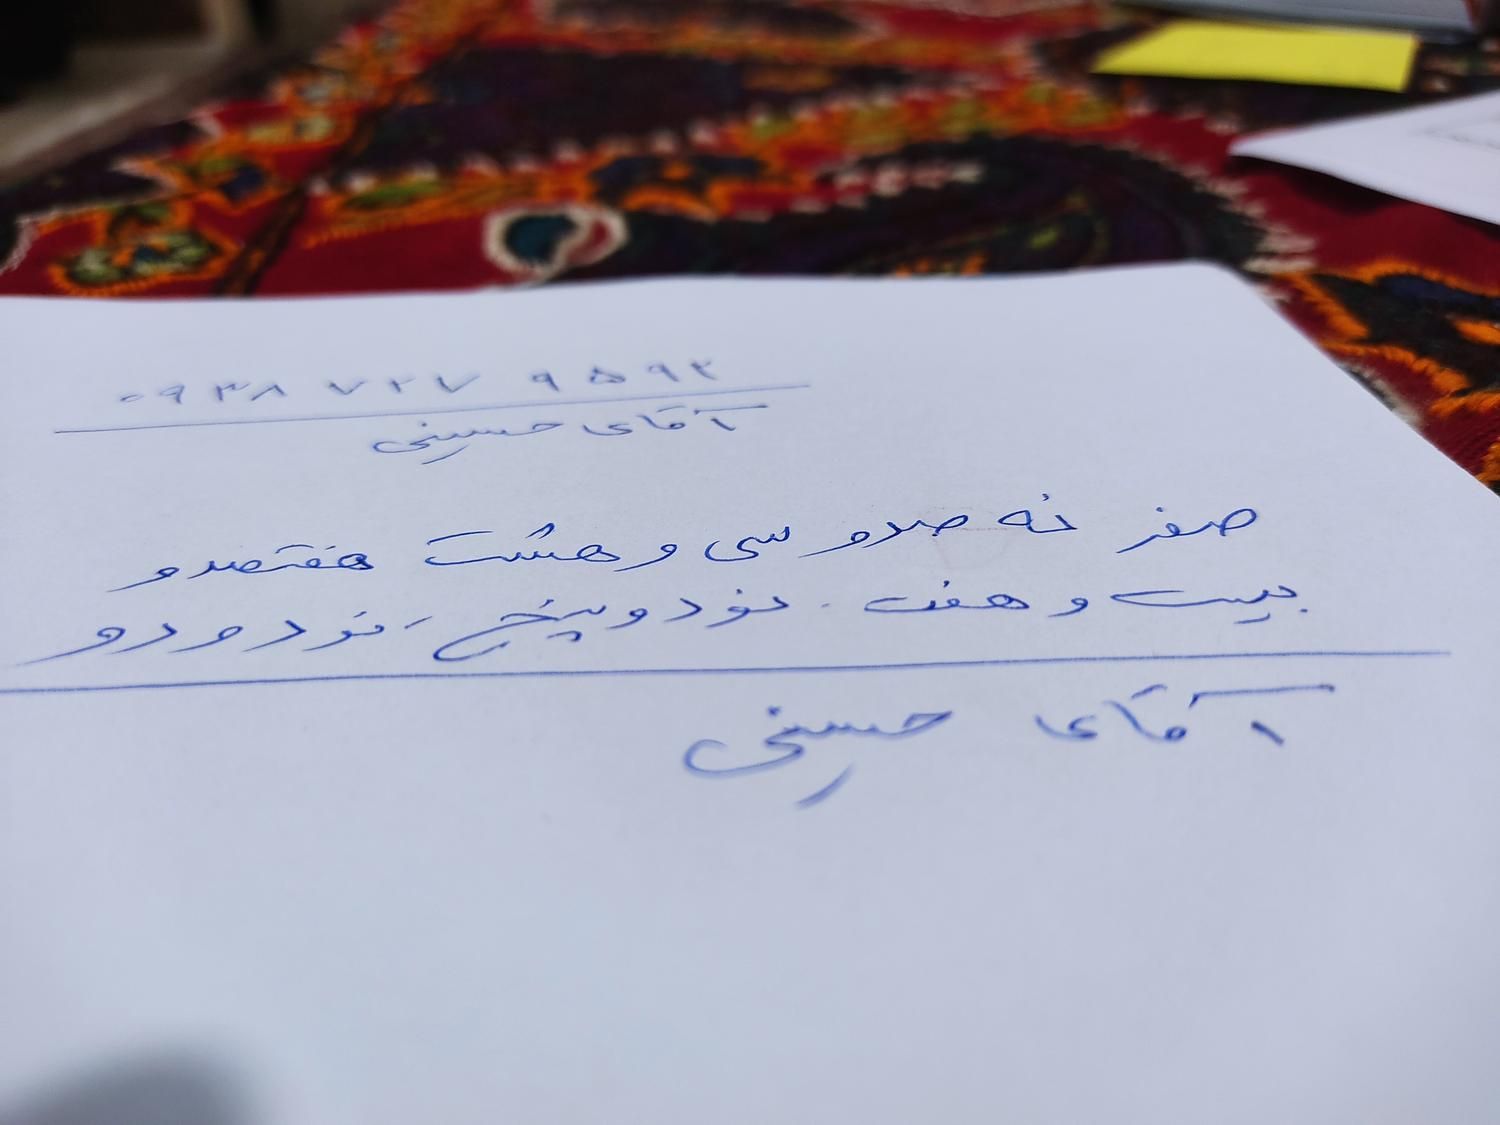 ۰۹۳۸ ۷۲۷ ۹۵۹۲
آقای حسینی
صفر نه صدو سی و هشت هفتصدو
بیست و هفت . نود و پنج ، نود و دو
آقای حسینی